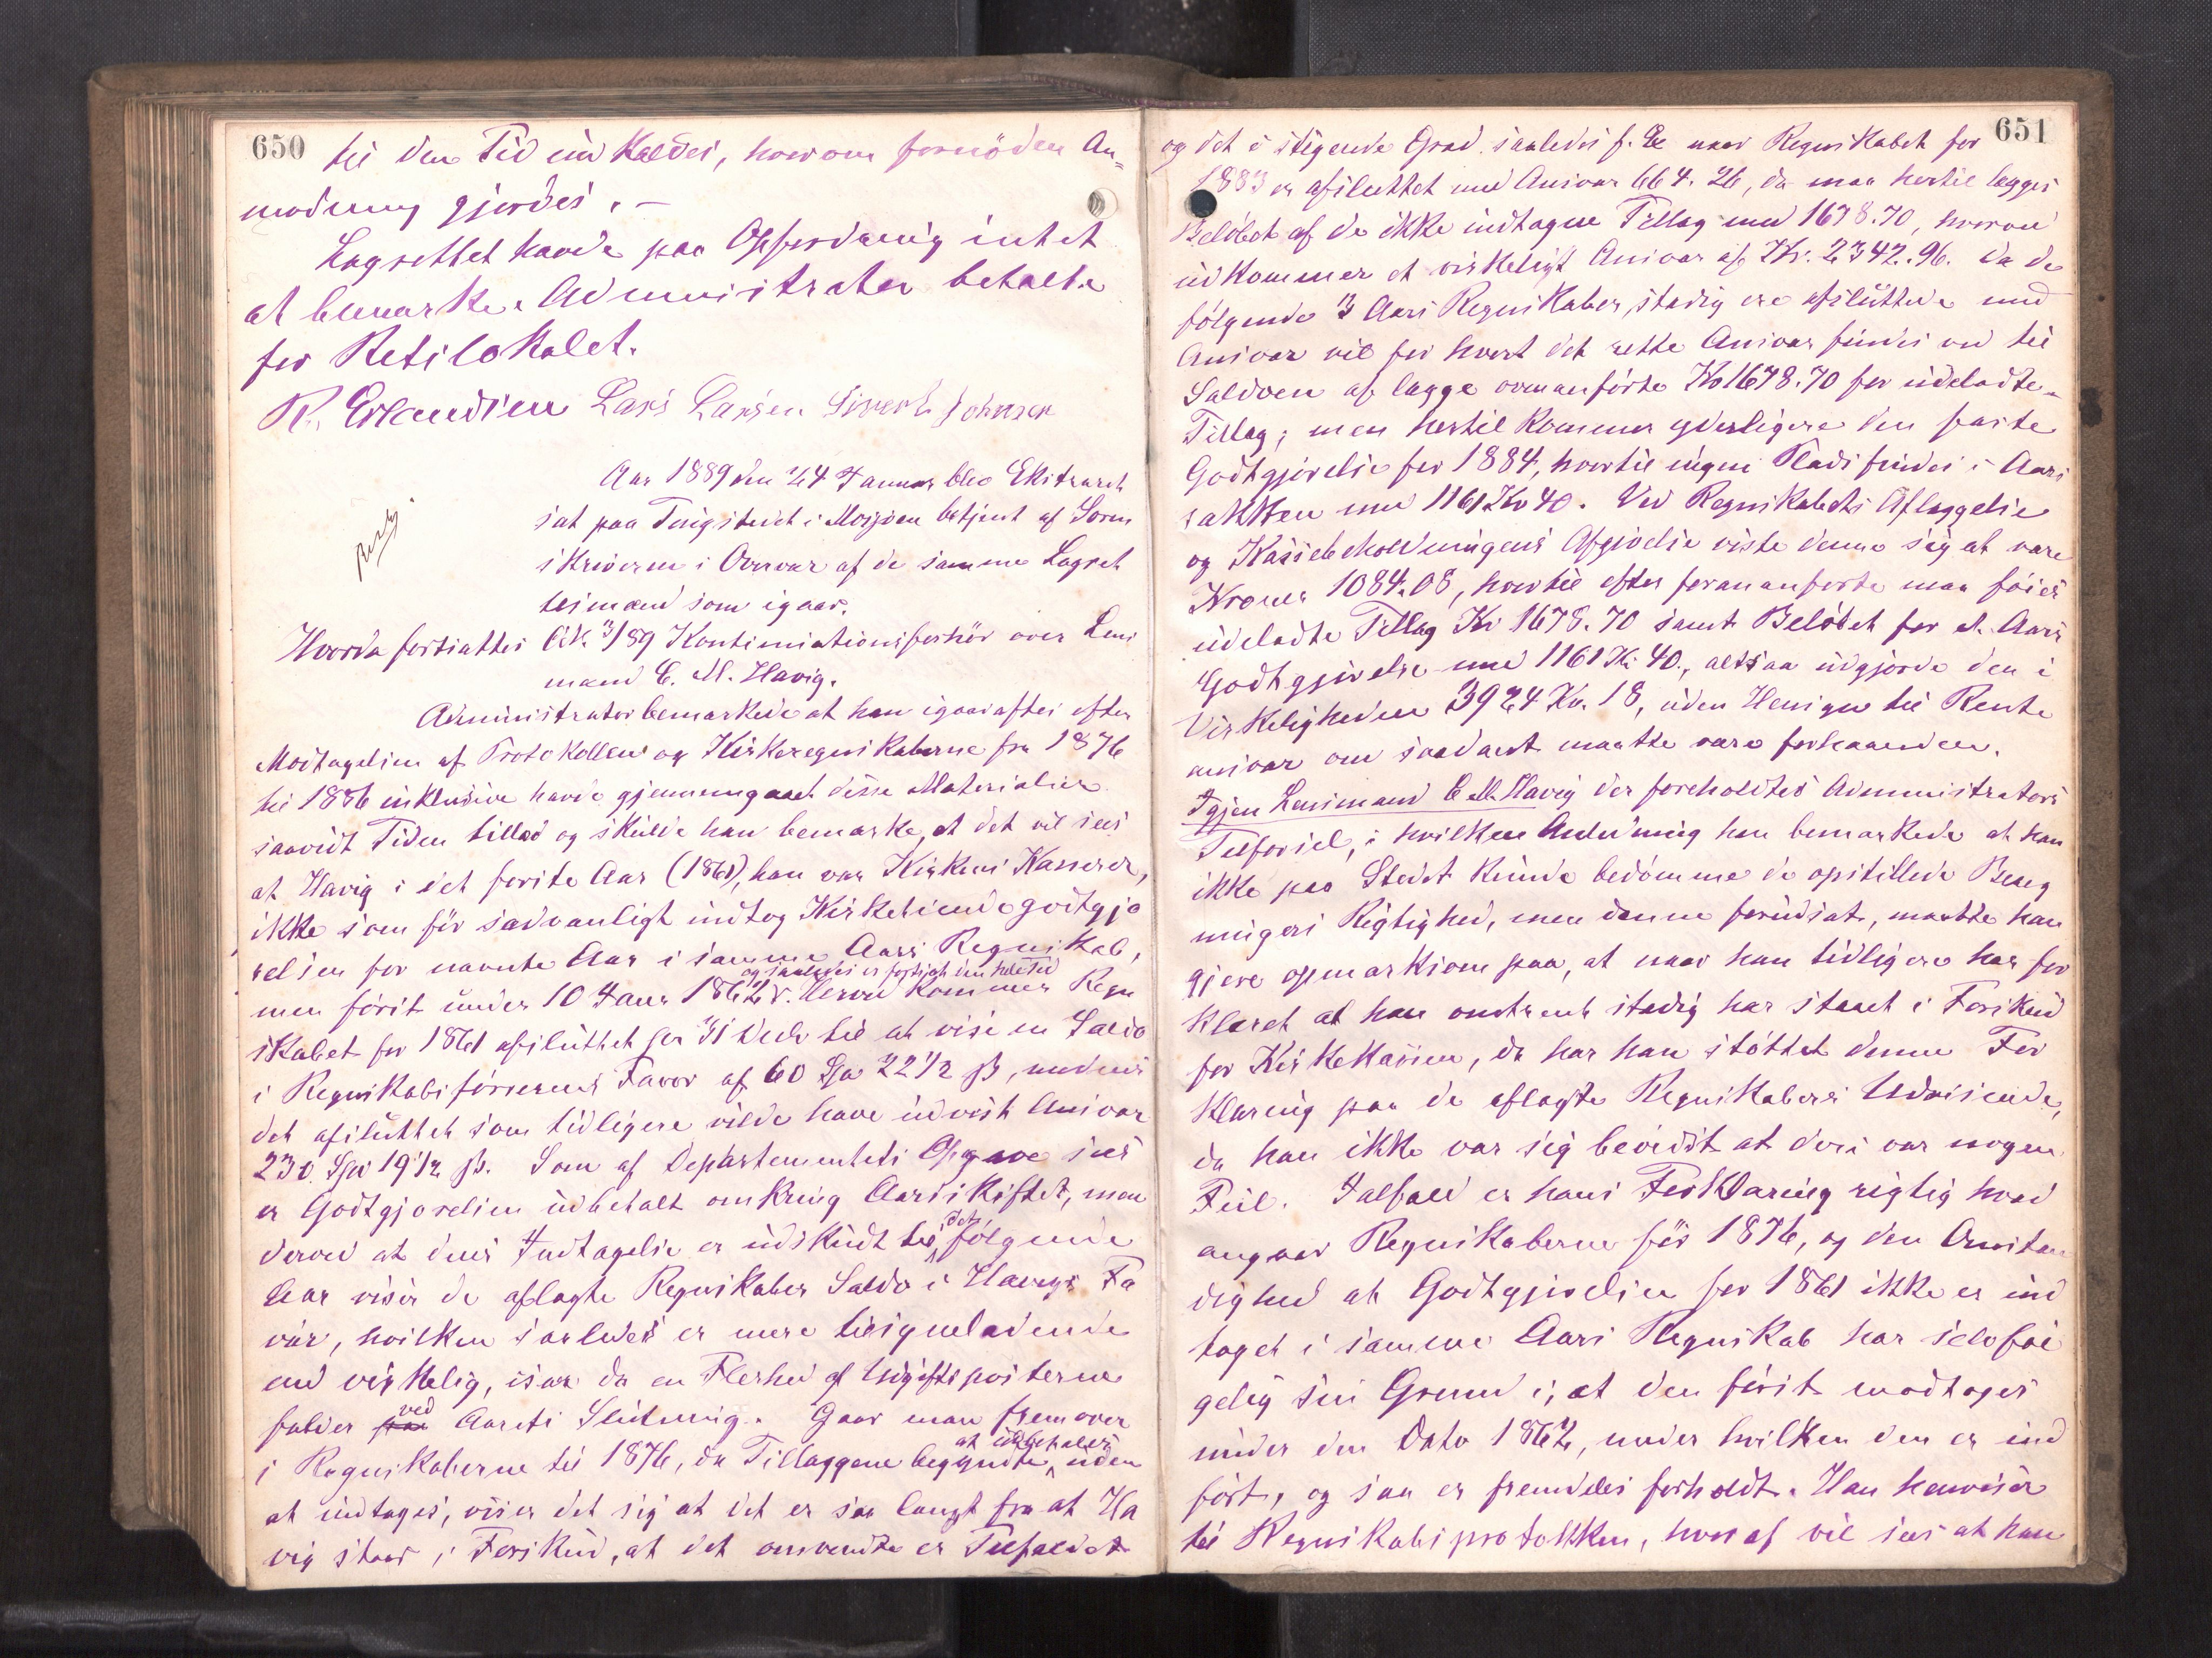 650
til den Tid indkaldes, hvorom fornöden An=
modning gjordes. –
Lagrettet havde paa Opfordring intet
at bemærke. Administrator betalte
for Retslokalet.
R. Erlendsen Lars Larsen Sivert Johnsen
Aar 1889 den 24 Januar blev Extraret
sat paa Tingstedet i Mosjöen betjent af Soren
skriveren i Overvær af de samme Lagret
tesmænd som igaar.
Hvorda fortsattes Lit. 3/89 Kontinuationsforhör over Lens
mand C. M. Havig.
Administrator bemærkede at han igaaraftes efter
Modtagelsen af Protokollen og Kirkeregnskaberne fra 1876
til 1886 inklusive havde gjennemgaaet disse Materialier
saavidt Tiden tillod og skulde han bemærke, at det vil sees
at Havig i det forste Aar (1861), han var Kirkens Kasserer,
ikke som för sædvanligt indtog Kirketiendegodtgjø
relsen for nævnte Aar i samme Aars Regnskab,
og saaledes er fortsat den hele Tid
men först under 10 Januar 1862. Herved kommer Regn
skabet for 1861 afsluttet per 31 Decbr til at vise en Saldo
i Regnskabsförerens Favør af 60 Spd 22 1/2 ß, medens
det afsluttet som tidligere vilde have udvist Ansvar
230 Spd 19 1/2 ß. Som af Departementets Opgave sees
er Godtgjørelsen udbetalt omkring Aarsskiftet, men
derved at dens Indtagelse er udskudt til det fölgende
Aar viser de aflagte Regnskaber Saldo i Havigs Fa
vør, hvilken saaledes er mere tilsyneladende
end virkelig, især da en Flerhed af Udgiftsposterne
falder ved Aarets Slutning. Gaar man fremover
i Regnskaberne til 1876, da Tillæggene begyndte at udbetales, uden
at indtages, viser det sig at det er saa langt fra at Ha
vig staar i Forskud, at det omvendte er Tilfældet
651
og det i stigende Grad saaledes f. Ex naar Regnskabet for
1883 er afsluttet med Ansvar 664.26, da maa hertil lægges
Belöbet af de ikke indtagne Tillæg med 1678.70, hvorved
udkommer et virkeligt Ansvar af Kr. 2342.96. Da de
fölgende 3 Aars Regnskaber stadig ere afsluttede med
Ansvar vil for hvert det rette Ansvar findes ved til
Saldoen at lægge ovenanförte Kr 1678.70 for udeladte
Tillæg; men hertil kommer yderligere den faste
Godtgjörelse for 1884, hvortil ingen Plads findes i Aars
rækken med 1161 Kr 40. Ved Regnskabets Aflæggelse
og Kassebeholdningens Afgivelse viste denne sig at være
Kroner 1084.08, hvortil efter forananförte maa föies
udeladte Tillæg Kr 1678.70 samt Belöbet for et Aars
Godtgjörelse med 1161 Kr 40, altsaa udgjorde den i
Virkeligheden 3924 Kr. 18, uden Hensyn til Rente
ansvar om saadant maatte være forhaanden.
Igjen Lensmand C M. Havig der foreholdtes Administrators
Tilförsel, i hvilken Anledning han bemærkede at han
ikke paa Stedet kunde bedömme de opstillede Bereg
ningers Rigtighed, men denne forudsat, maatte han
gjøre opmærksom paa, at naar han tidligere har for
klaret at han omtrent stadig har staaet i Forskud
for Kirkekassen, da har han stöttet denne For
klaring paa de aflagte Regnskabers Udvisende,
da han ikke var sig bevidst at deri var nogen
Feil. Ialfald er hans Forklaring rigtig hvad
angaar Regnskaberne för 1876, og den Omstæn
dighed at Godtgjörelsen for 1861 ikke er ind
taget i samme Aars Regnskab har selvföl
gelig sin Grund i, at den först modtoges
under den Dato 1862, under hvilken den er ind
fört, og saa er fremdeles forholdt. Han henviser
til Regnskabsprotokollen, hvoraf vil sees at han